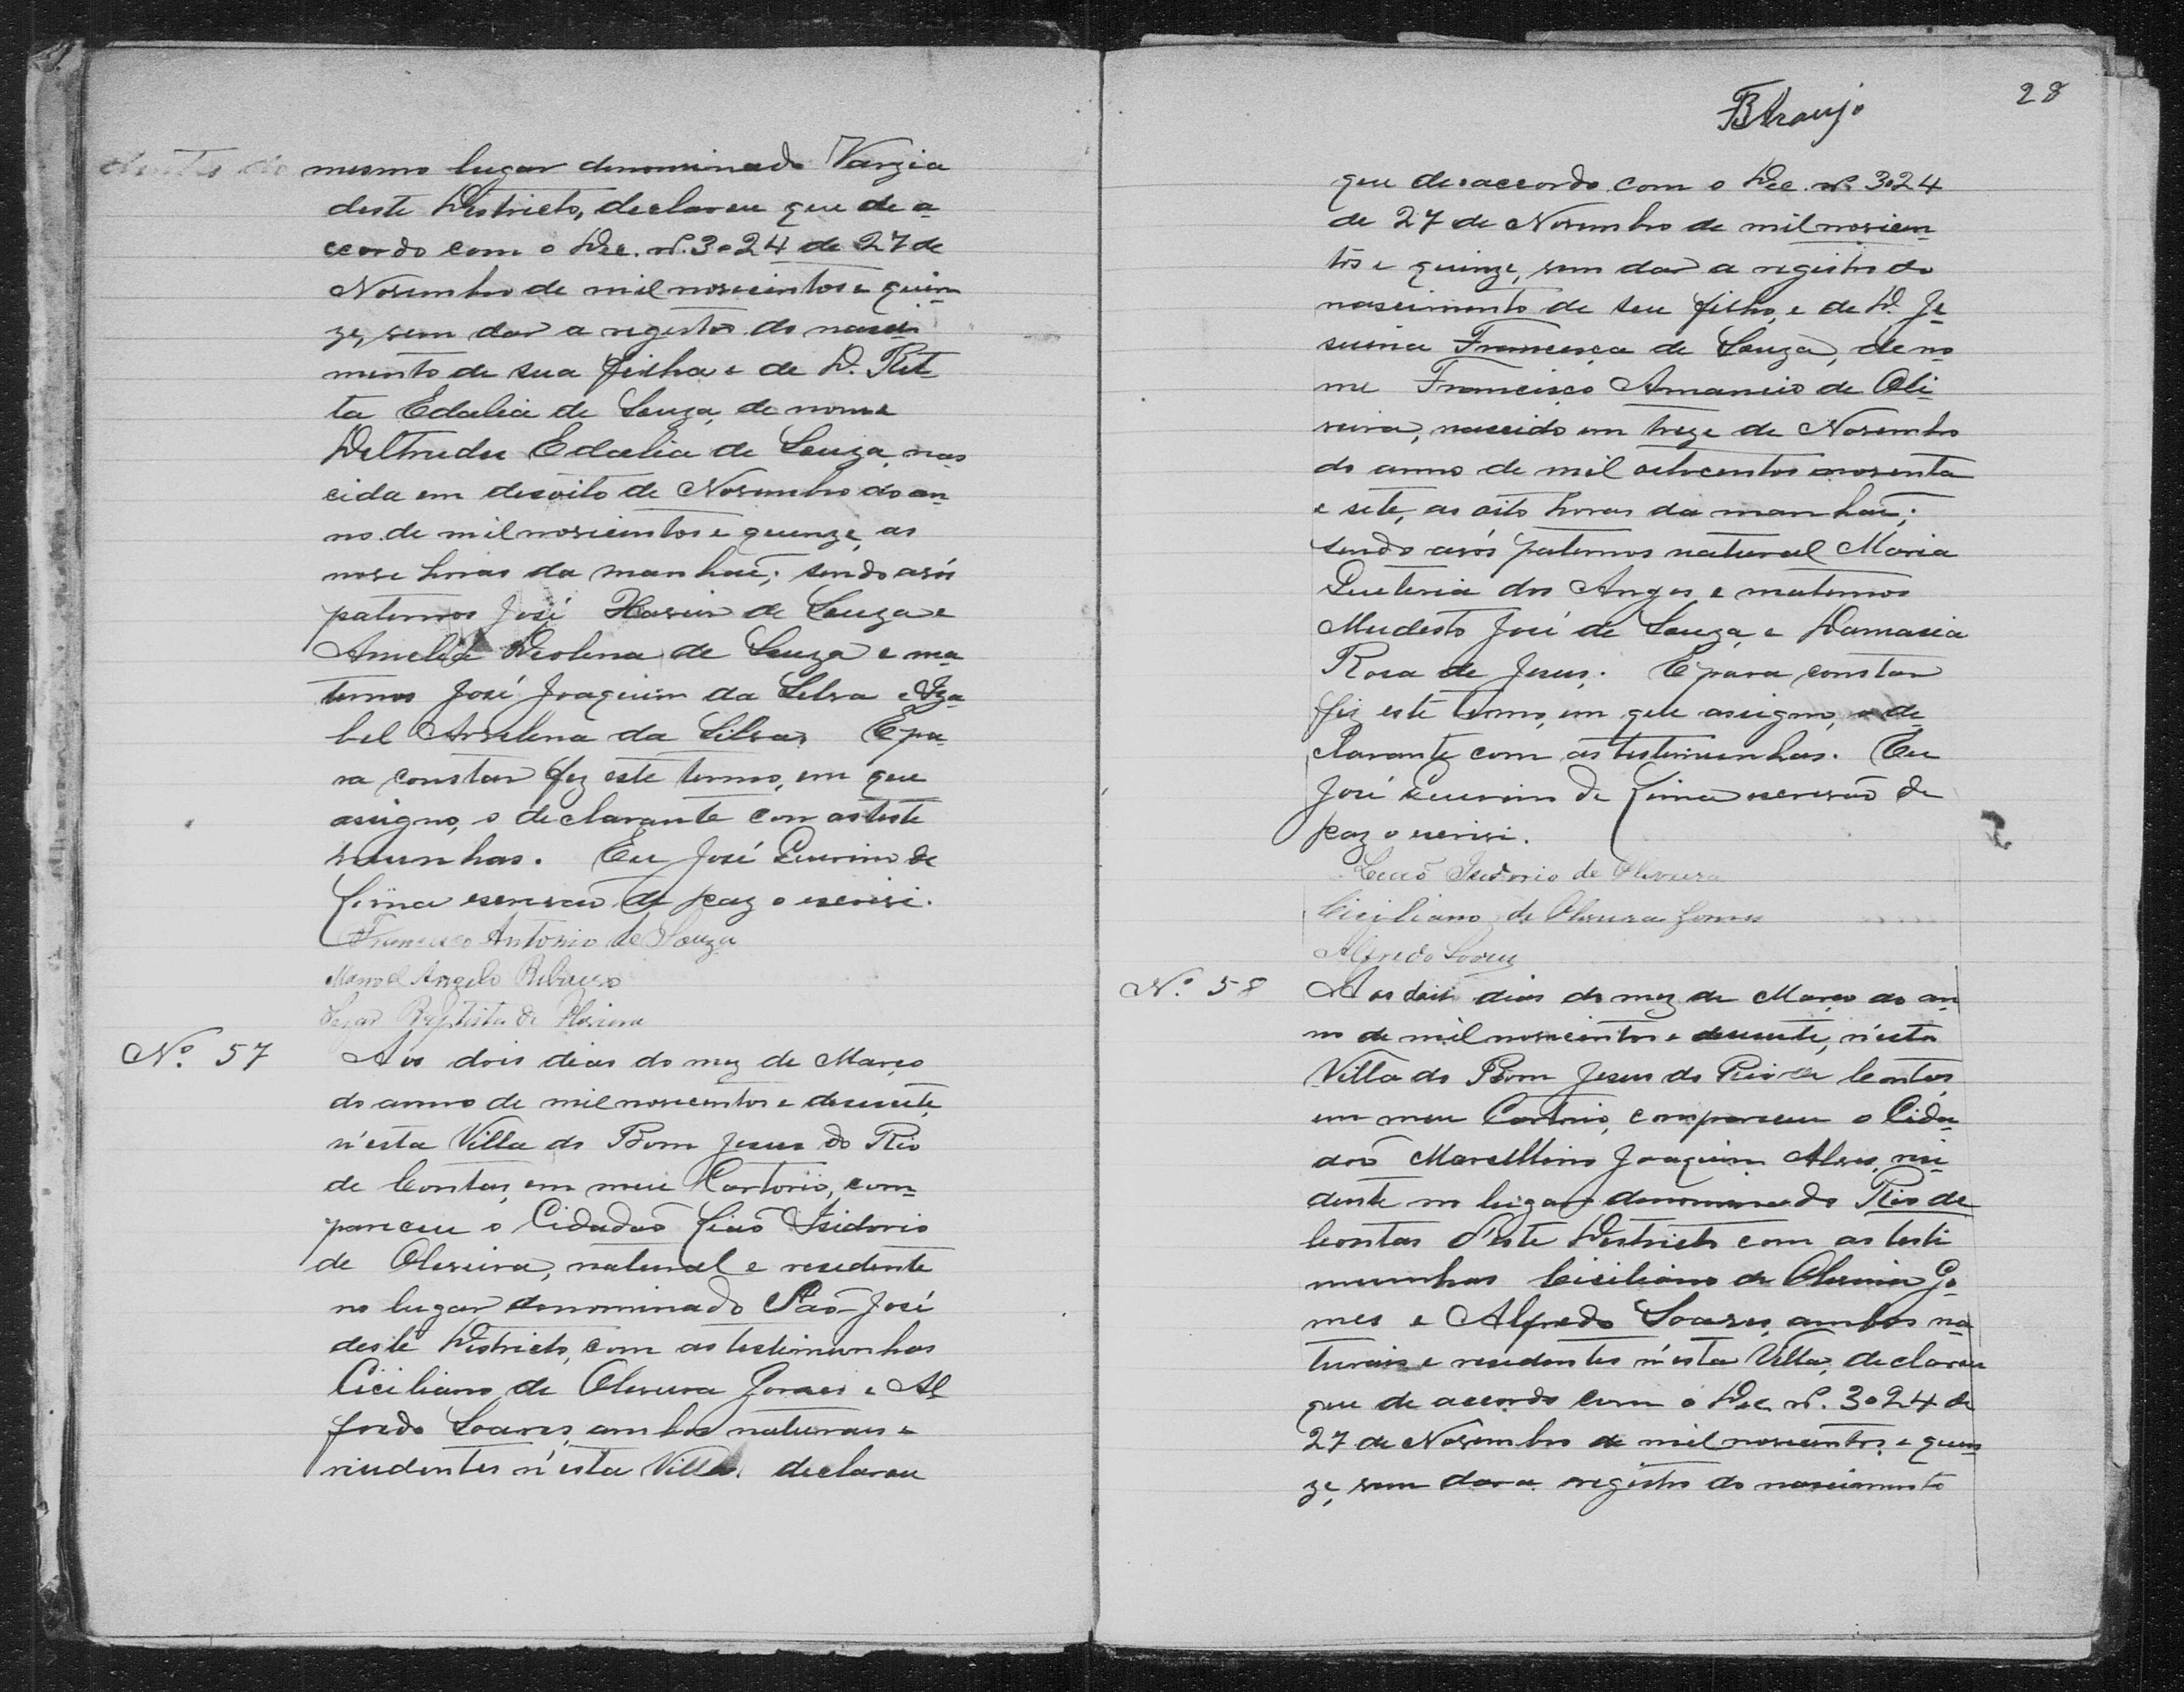 mesmo lugar denominado Varzia
deste Districto, declarou que de a-
ccordo com o Dec. nº. 3024 de 27 de
Novembro de mil novecentos e quin-
ze, vem dar a registro do nasci-
mento de sua filha e de D. Rit-
ta Edalia de Souza, de nome
Deltrudes Edalia de Souza, nas-
cida em desoito de Novembro do an-
no de mil novecentos e quinze, as
nove horas da manhaã; sendo avós
paternos José de Souza e
Amelia de Souza e ma-
ternos José Joaquim da Silva e Iza-
bel da Silva. E pa-
ra constar fiz este termo, em que
assigno, o declarante com as teste
munhas. Eu José Quirino de
Lima escrivão de paz o escrivi.
Francisco Antonio de Souza
Manoel Angelo Ribeiro
Baptista de Oliveira
Nº. 57 Aos dois dias do mez de Março
do anno de mil novecentos e desesete,
n'esta Villa do Bom Jesus do Rio
de Contas, em meu Cartorio, com-
pareceu o Cidadaõ Liaõ Isidorio
de Oliveira, natural e residente
no lugar denominado Saõ José
deste Districto, com as testimunhas
Ciciliano de Oliveira Gomes e Al
fredo Soares, ambos naturaes e
risidentes n'esta Villa, declarou
28
BAraujo
que de accordo com o Dec. nº. 3024
de 27 de Novembro de mil novecen-
tos e quinze, vem dar a registro do
nascimento de seu filho, e de D. Je-
suina Francisca de Souza, de no-
me Francisco Amancio de Oli-
veira, nascido em treze de Novembro
do anno de mil oitocentos noventa
e sete, as oito horas da manhaã;
sendo avós paternos natural Maria
Quiteria dos Anjos e maternos
Mudesto José de Souza, e Damasia
Rosa de Jesus. E para constar
fiz este termo, em que assigno, o de-
clarante com as testimunhas. Eu
José Quirino de Lima escrivaõ de
paz o escrivi.
Leaõ Isidorio de Oliveira
Ciciliano de Oliveira Gomes
Alfredo Soares
Nº. 58 Aos dois dias do mez de Março do an-
no de mil novecentos e desesete, n'esta
Villa do Bom Jesus do Rio de Contas,
em meu Cartorio, compareceu o Cida-
daõ Marcellino Joaquim Alves, resi-
dente no lugar denominado Rio de
Contas d'este Districto com as testi
munhas Ciciliano de Oliveira Go-
mes e Alfredo Soares, ambos na-
turais e residentes n'esta Villa, declarou
que de accordo com o Dec. nº. 3024 de
27 de Novembro de mil novecentos e quin-
ze, vem dar a registro do nascimento